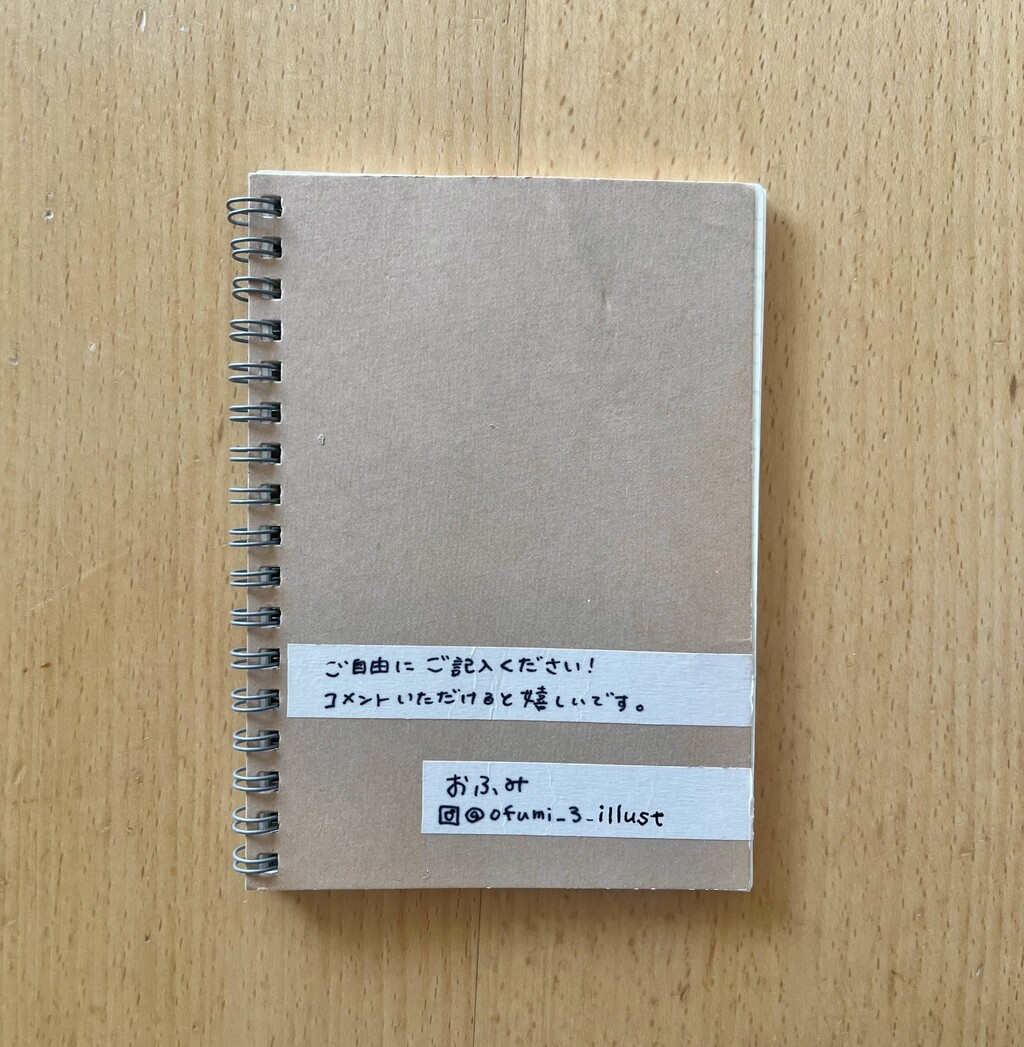 ご自由に ご記入ください!
コメントいただけると嬉しいです。
おふみ
@ofumi_3_illust